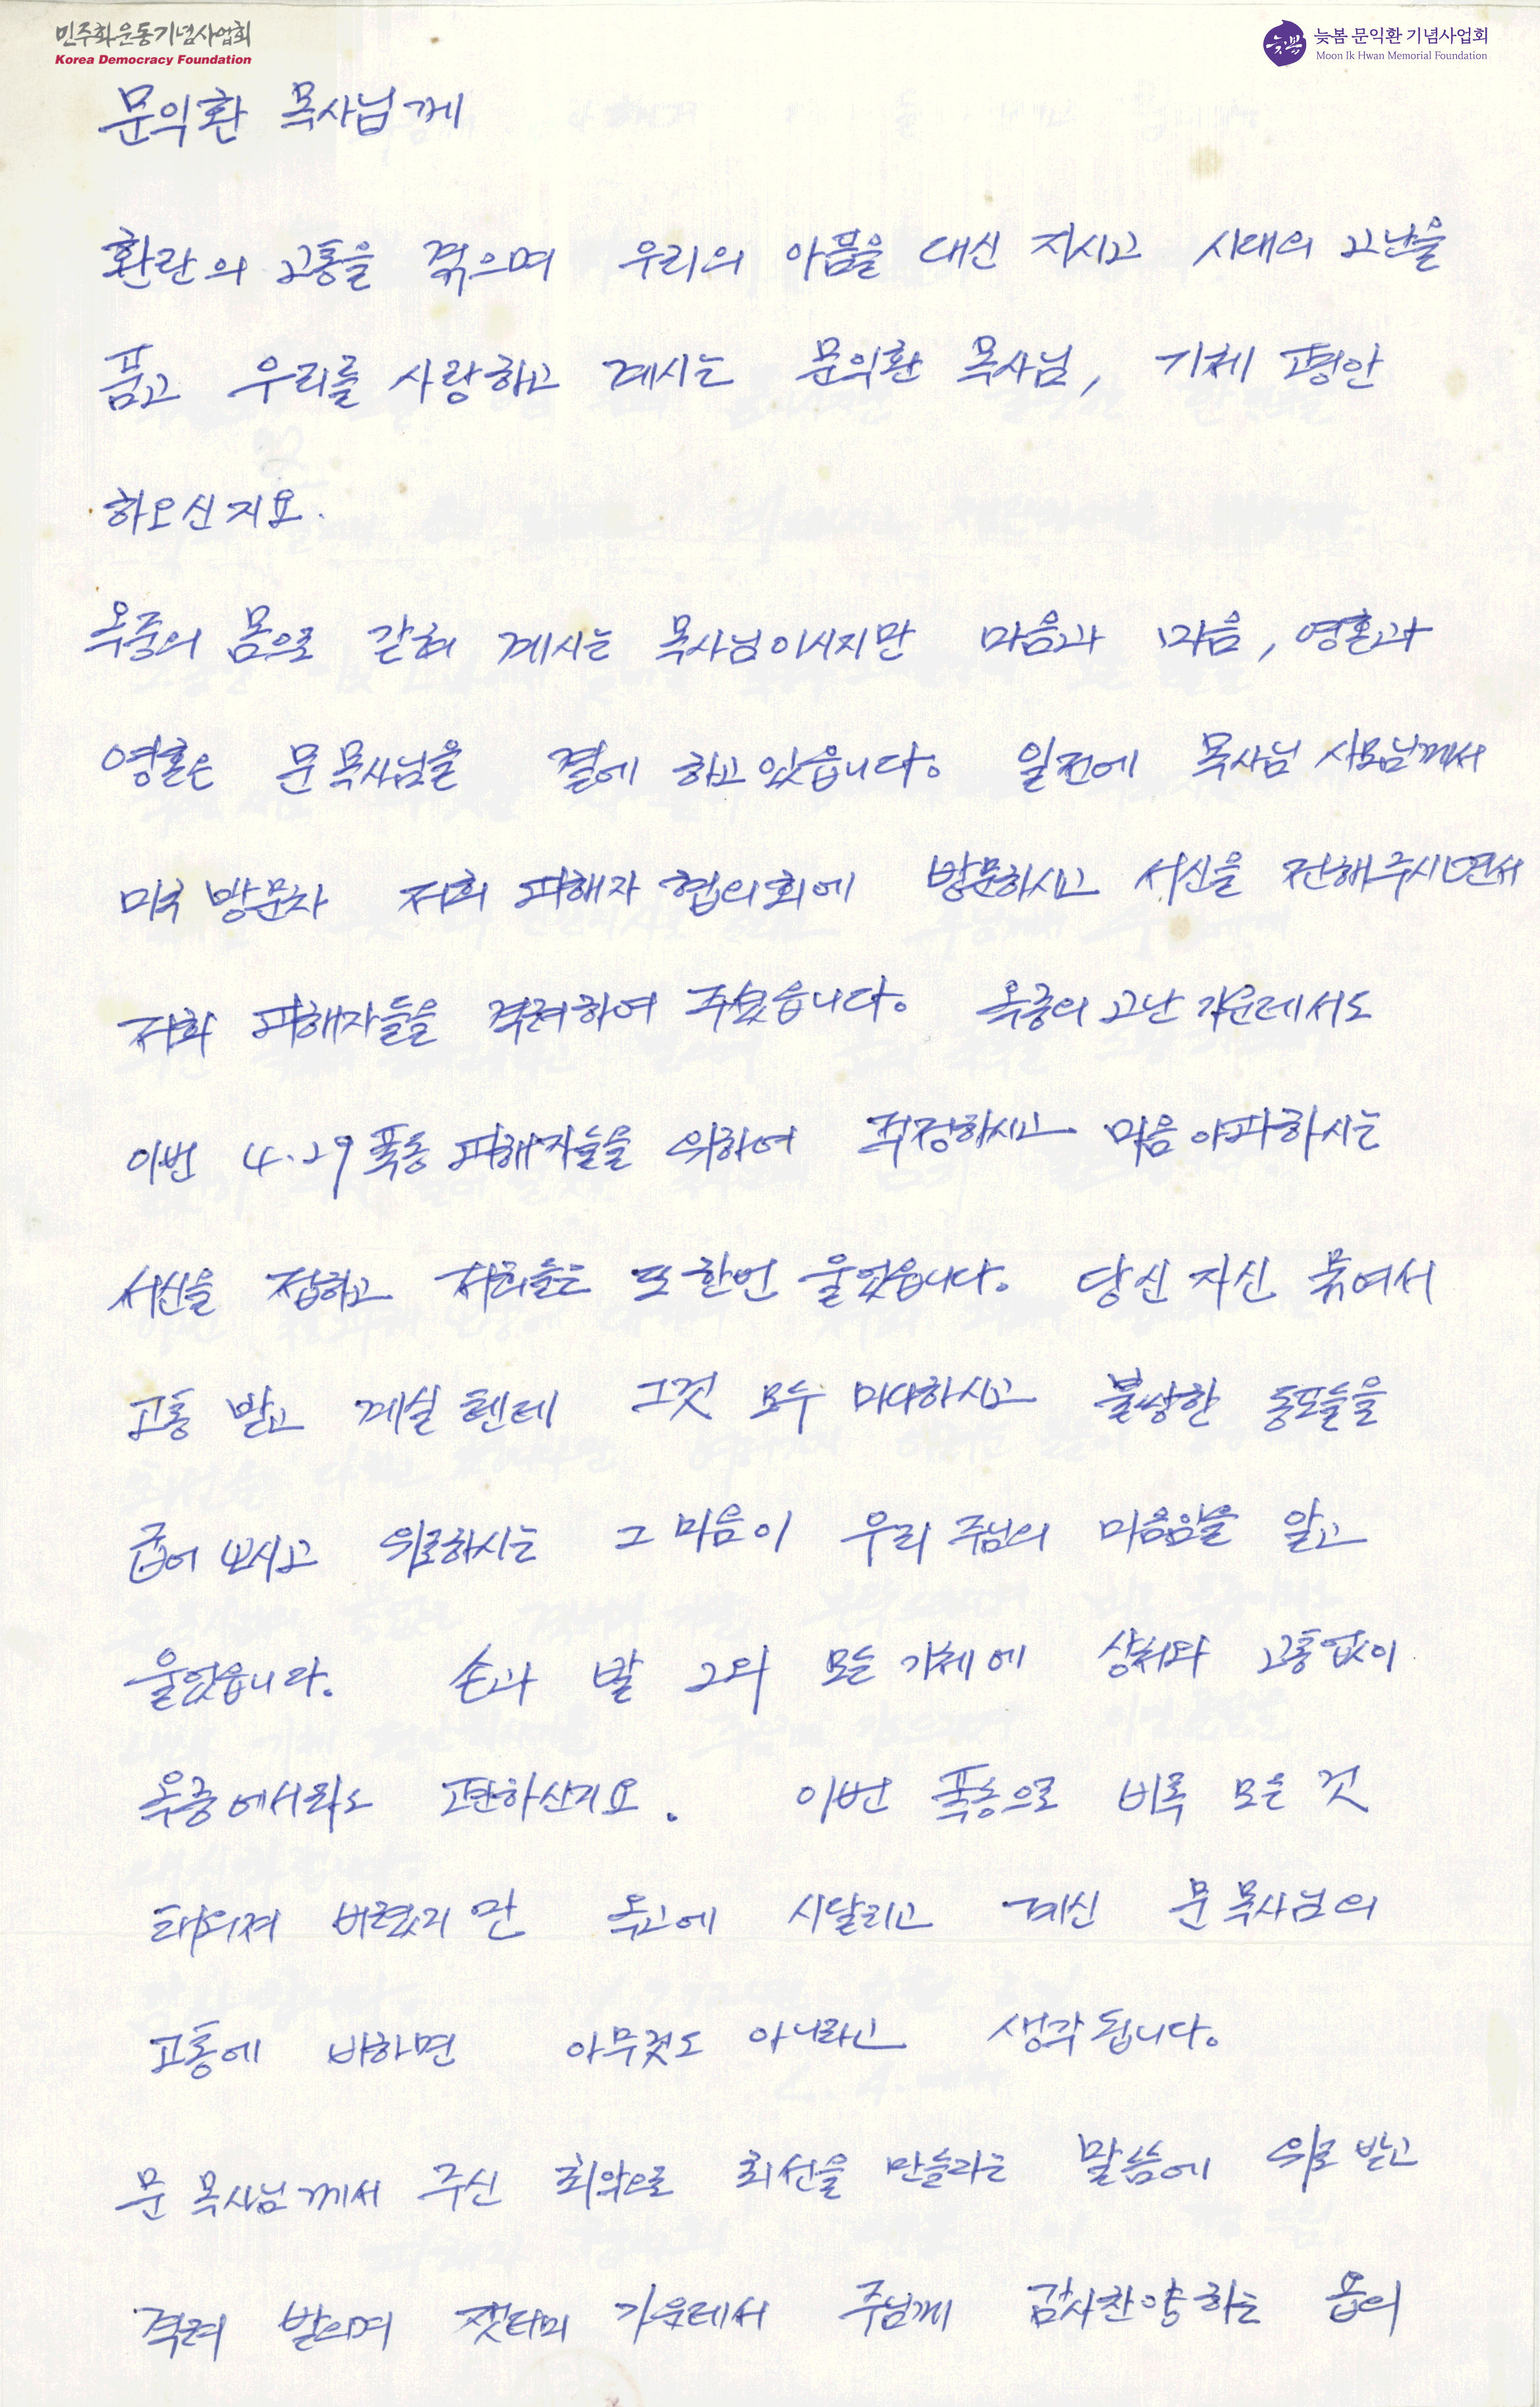 민주화운동기념사업회
Korea Democracy Foundation
늦봄 늦봄 문익환 기념사업회
Moon Ik Hwan Memorial Foundation
문익환 목사님께
환란의 고통을 겪으며 우리의 아픔을 대신 지시고 시대의 고난을
품고 우리를 사랑하고 계시는 문익환 목사님, 기체 평안
하오신지요.
옥중의 몸으로 갇혀 계시는 목사님이시지만 마음과 마음, 영혼과
영혼은 문 목사님을 곁에 하고 있읍니다. 일전에 목사님 사모님께서
미국 방문차 저희 피해자 협의회에 방문하시고 서신을 전해주시면서
저희 피해자들을 격려하여 주셨읍니다. 옥중의 고난 가운데서도
이번 4.29 폭동 피해자들을 위하여 걱정하시고 마음 아파하시는
서신을 접하고 저희들은 또 한번 울었읍니다. 당신 자신 묶여서
고통 받고 계실 텐데 그것 모두 마다하시고 불쌍한 동포들을
굽어 보시고 위로하시는 그 마음이 우리 주님의 마음임을 알고
울었읍니다. 손과 발 그외 모든 기체에 상처와 고통없이
옥중에서라도 평안하신지요. 이번 폭동으로 비록 모든 것
태워져 버렸지만 옥고에 시달리고 계신 문 목사님의
고통에 비하면 아무것도 아니라고 생각됩니다.
문 목사님께서 주신 최악으로 최선을 만들라는 말씀에 위로 받고
격려 받으며 잿더미 가운데서 주님께 감사찬양하는 욥의